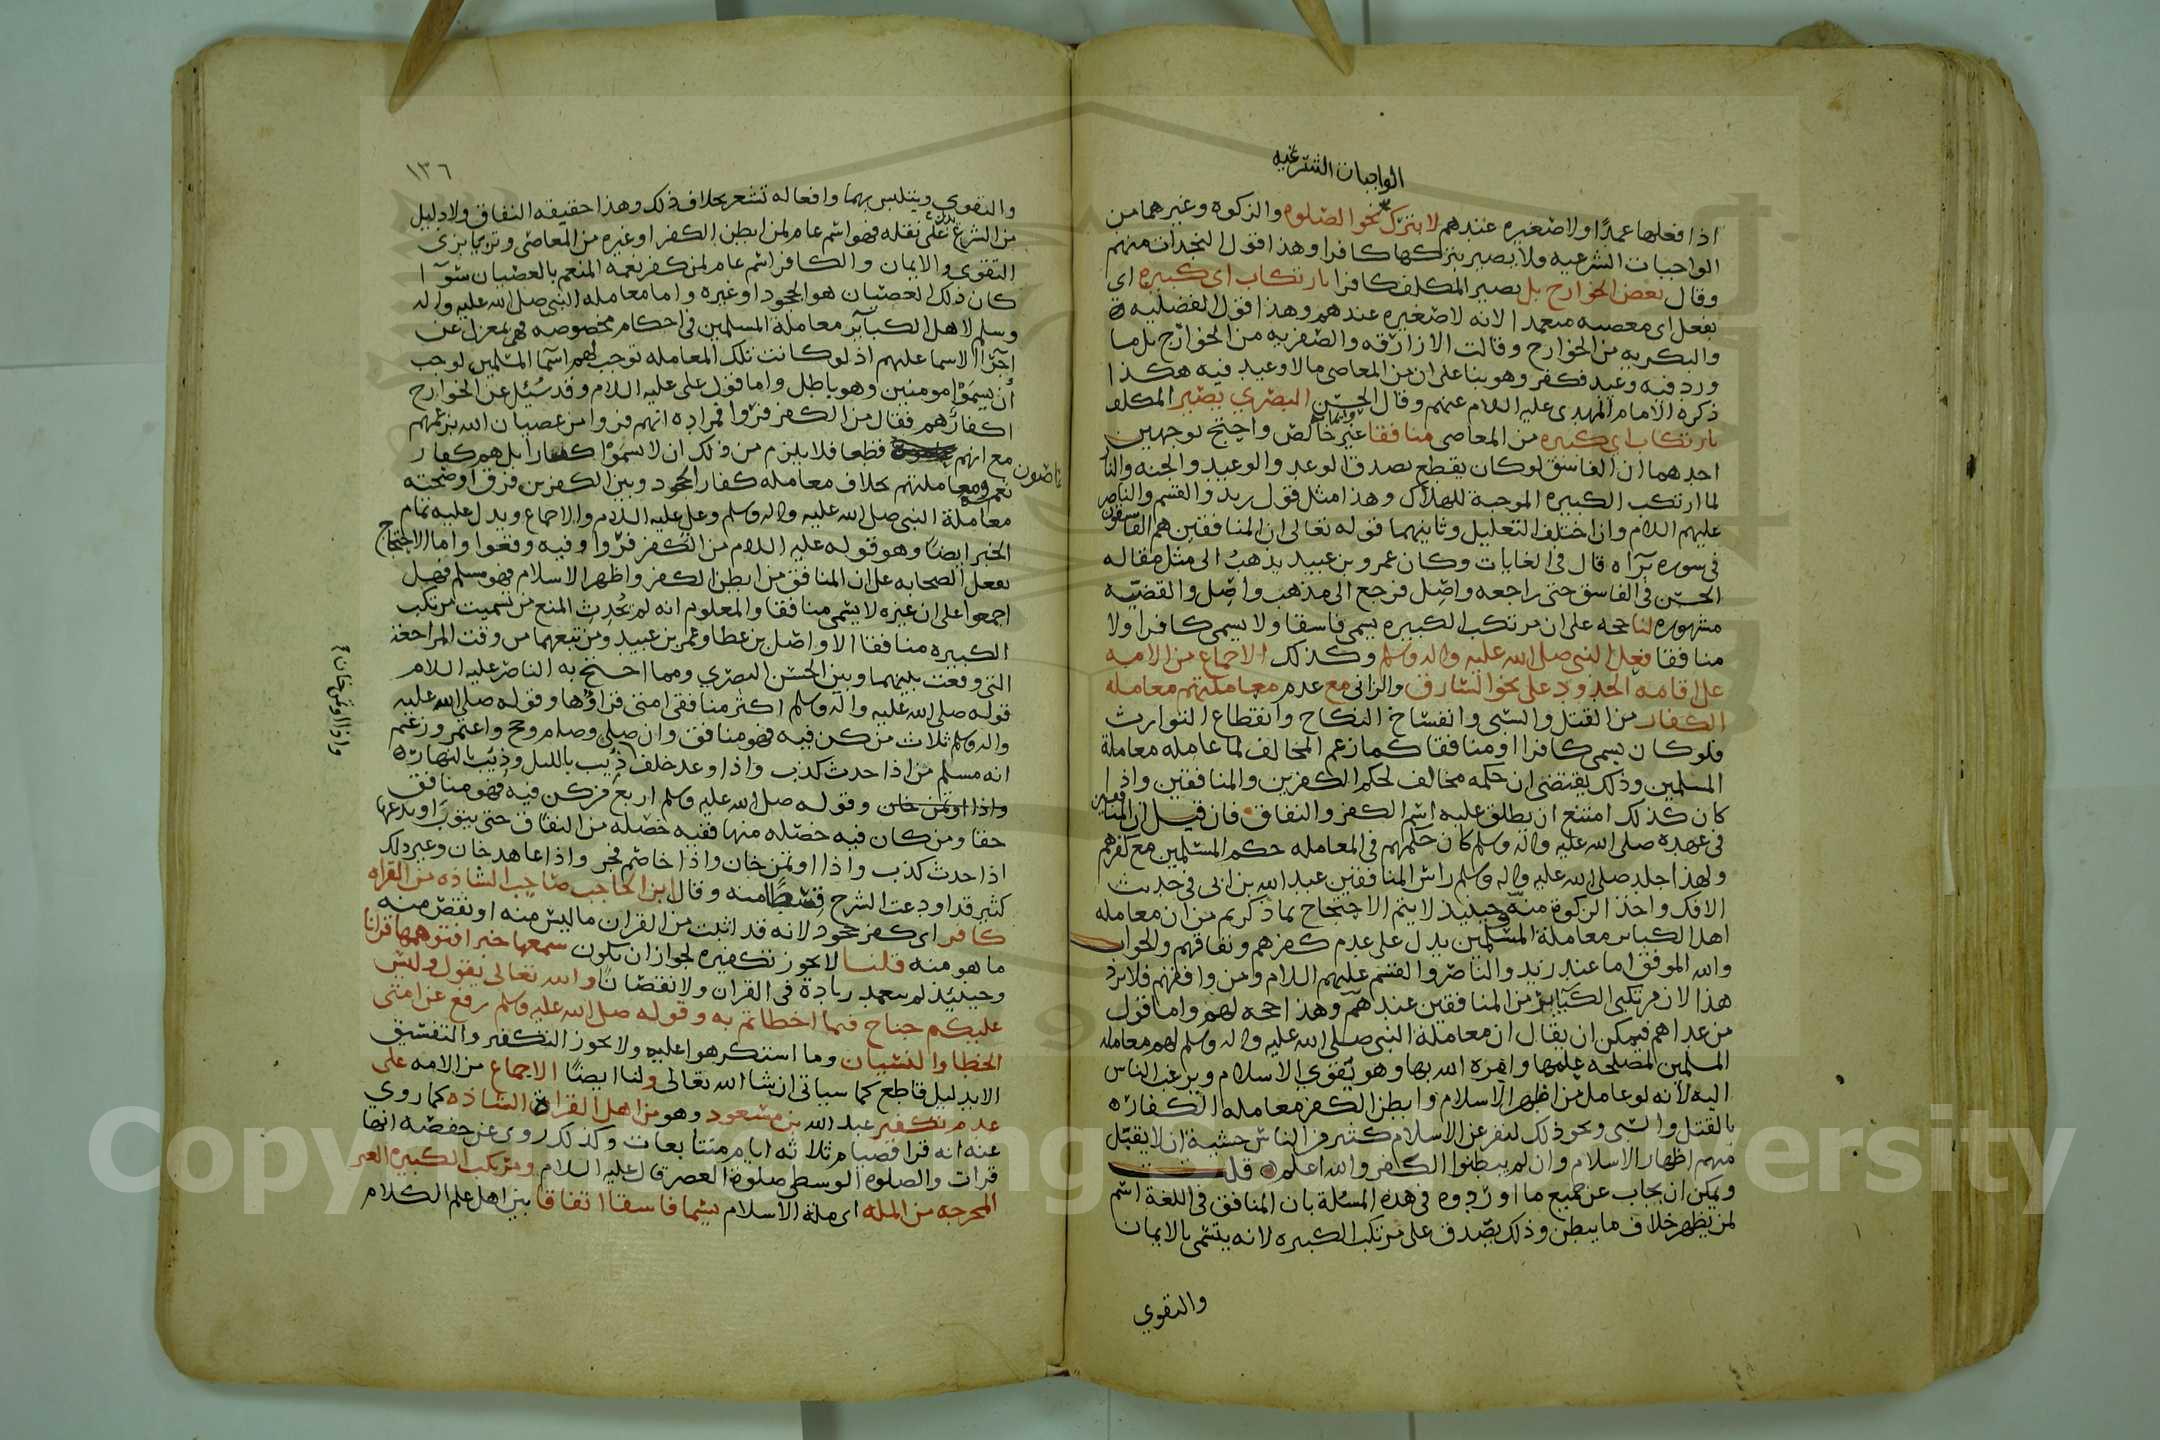 الواجبات الشرعيه
اذا فعلها عمدًا ولا صغيره عندهم لا بترك نحو الصلوه والزكوه وغيرهما من
الواجبات الشرعيه ولا يصير بتركها كافرا وهذا قول النجدات منهم
وقال بعض الخوارج بل يصير المكلف كافرا بارتكاب اي كبيره اي
بفعل اي معصيه متعمدا لانه لا صغيره عندهم وهذا قول الفضليه
والبكريه من الخوارج وقالت الازارقه والصفريه من الخوارج بل ما
ورد فيه وعيد فكفر وهو بنا على ان من المعاصي ما لا وعيد فيه هكذا
ذكره الامام المهدي عليه السلام عنهم وقال الحسن البصري يصير المكلف
بارتكاب اي كبيره من المعاصي منافقا غير خالص واحتج بوجهين
احدهما ان الفاسق لو كان يقطع بصدق الوعد والوعيد والجنه والنار
لما ارتكب الكبيره الموجبة للهلاك وهذا مثل قول زيد والقسم والناصر
عليهم السلام وان اختلف التعليل وثانيهما قوله تعالى ان المنافقين هم الفاسقون
في سوره برآه قال في الغايات وكان عمرو بن عبيد يذهب الى مثل مقاله
الحسن في الفاسق حتى راجعه واصل فرجع الى مذهب واصل والقضيه
مشهوره لنا حجه على ان مرتكب الكبيره يسمى فاسقا ولا يسمى كافرا ولا
منافقا فعل النبي صلى الله عليه واله وسلم وكذلك الاجماع من الامه
على اقامه الحدود على نحو السارق والزاني مع عدم معاملتهم معامله
الكفار من القتل والسبي وانفساخ النكاح وانقطاع التوارث
فلو كان يسمى كافرا او منافقا كما زعم المخالف لما عامله معاملة
المسلمين وذلك يقتضى ان حكمه مخالف لحكم الكفرين والمنافقين واذا
كان كذلك امتنع ان يطلق عليه اسم الكفر والنفاق فان قيل ان المنافقين
في عهده صلى الله عليه واله وسلم كان حكمهم في المعامله حكم المسلمين مع كفرهم
ولهذا جلد صلى الله عليه واله وسلم راس المنافقين عبد الله بن ابى في حديث
الافك واخذ الزكوة منه حينيذ لا يتم الاحتجاج بما ذكرتم من ان معامله
اهل الكبائر معاملة المسلمين يدل على عدم كفرهم ونفاقهم والجواب
والله الموفق اما عند زيد والناصر والقسم عليهم السلام ومن وافقهم فلا يرد
هذا لان مرتكبي الكبآير من المنافقين عندهم وهذا حجه لهم واما قول
من عداهم فيمكن ان يقال ان معاملة النبي صلى الله عليه واله وسلم لهم معامله
المسلمين لمصلحه علمها وامره الله بها وهو تقوي الاسلام ويرغب الناس
اليه لانه لو عامل من اظهر الاسلام وابطن الكفر معامله الكفاره
بالقتل والسبي ونحو ذلك لنفر عن الاسلام كثير من الناس خشية ان لا يقبل
منهم اظهار الاسلام وان لم يبطنوا الكفر والله اعلم قلت
ويمكن ان يجاب عن جميع ما اوردوه في هذه المسئلة بان المنافق في اللغة اسم
لمن يظهر خلاف ما يبطن وذلك يصدق على مرتكب الكبيره لانه يتسمى بالايمان
والتقوي
١٣٦
والتقوي ويتلبس بهما وافعاله تشعر بخلاف ذلك وهذا حقيقه النفاق ولا دليل
من الشرع يدل على نقله فهو اسم عام لمن ابطن الكفر او غيره من المعاصي وتزيا بزي
التقوي والايمان والكافر اسم عام لمن كفر نعمه المنعم بالعصيان سوآ ا
كان ذلك العصيان هو الجحود او غيره واما معامله النبي صلى الله عليه واله
وسلم لاهل الكبآير معاملة المسلمين في احكام مخصوصه فهي بمعزل عن
اجرآ الاسما عليهم اذ لو كانت تلك المعامله توجب لهم اسما المسلمين لوجب
ان يسموا مومنين وهو باطل واما قول علي عليه السلام وقد سئل عن الخوارج
اكفار هم فقال من الكفر فروا فمراده انهم فروا من عصيان الله بزعمهم
مع انهم عاصون قطعا فلا يلزم من ذلك ان لا يسموا كفارا بل هم كفار
نعمه ومعاملتهم بخلاف معامله كفار الجحود وبين الكفرين فرق اوضحته
معاملة النبي صلى الله عليه واله وسلم وعلي عليه السلام والاجماع ويدل عليه تمام
الخبر ايضا وهو قوله عليه السلام من الكفر فروا وفيه وقعوا واما الاحتجاج
بفعل الصحابه على ان المنافق من ابطن الكفر واظهر الاسلام فهو مسلم فهل
اجمعوا على ان غيره لا يسمى منافقا والمعلوم انه لم يحدث المنع من تسميت مرتكب
الكبيره منافقا الا واصل بن عطا وعمر بن عبيد ومن تبعهما من وقت المراجعة
التي وقعت بينهما وبين الحسن البصري ومما احتج به الناصر عليه السلام
قوله صلى الله عليه واله وسلم اكثر منافقي امتي قراؤها وقوله صلى الله عليه
واله وسلم ثلاث من كن فيه فهو منافق وان صلى وصام وحج واعتمر وزعم
انه مسلم من اذا حدث كذب واذا وعد خلف ذيب بالليل وذيب بالنهار
واذا اوتمن خان وقوله صلى الله عليه وسلم اربع من كن فيه فهو منافق
حقا ومن كان فيه خصله منها ففيه خصله من النفاق حتى يتوب او يدعها
اذا حدث كذب واذا اوتمن خان واذا خاصم فجر واذا عاهد خان وغير ذلك
كثير قد اودعت الشرح قسطا منه وقال ابن الحاجب صاحب الشاذه من القراه
كافر اى كفر جحود لانه قد اثبت من القران ما ليس منه او نقص منه
ما هو منه قلنا لا يجوز تكفيره لجواز ان يكون سمعها خبرا فتوهمها قرانا
وحينيذ لم يتعمد زيادة في القران ولا نقصانا والله تعالى يقول وليس
عليكم جناح فيما اخطاتم به وقوله صلى الله عليه وسلم رفع عن امتى
الخطا والنسيان وما استكرهوا عليه ولا يجوز التكفير والتفسيق
الا بدليل قاطع كما سياتي ان شا الله تعالى ولنا ايضا الاجماع من الامه على
عدم تكفير عبد الله بن مسعود وهو من اهل القراة الشاذه كما روي
عنه انه قرا فصيام ثلاثه ايام متتابعات وكذلك روى عن حفصه انها
قرات والصلوه الوسطى صلوة العصر قال عليه السلام ومرتكب الكبيره الغير
المخرجه من الملة اى ملة الاسلام يسما فاسقا اتفاقا بين اهل علم الكلام
ناصون
واذا اوتمن خان